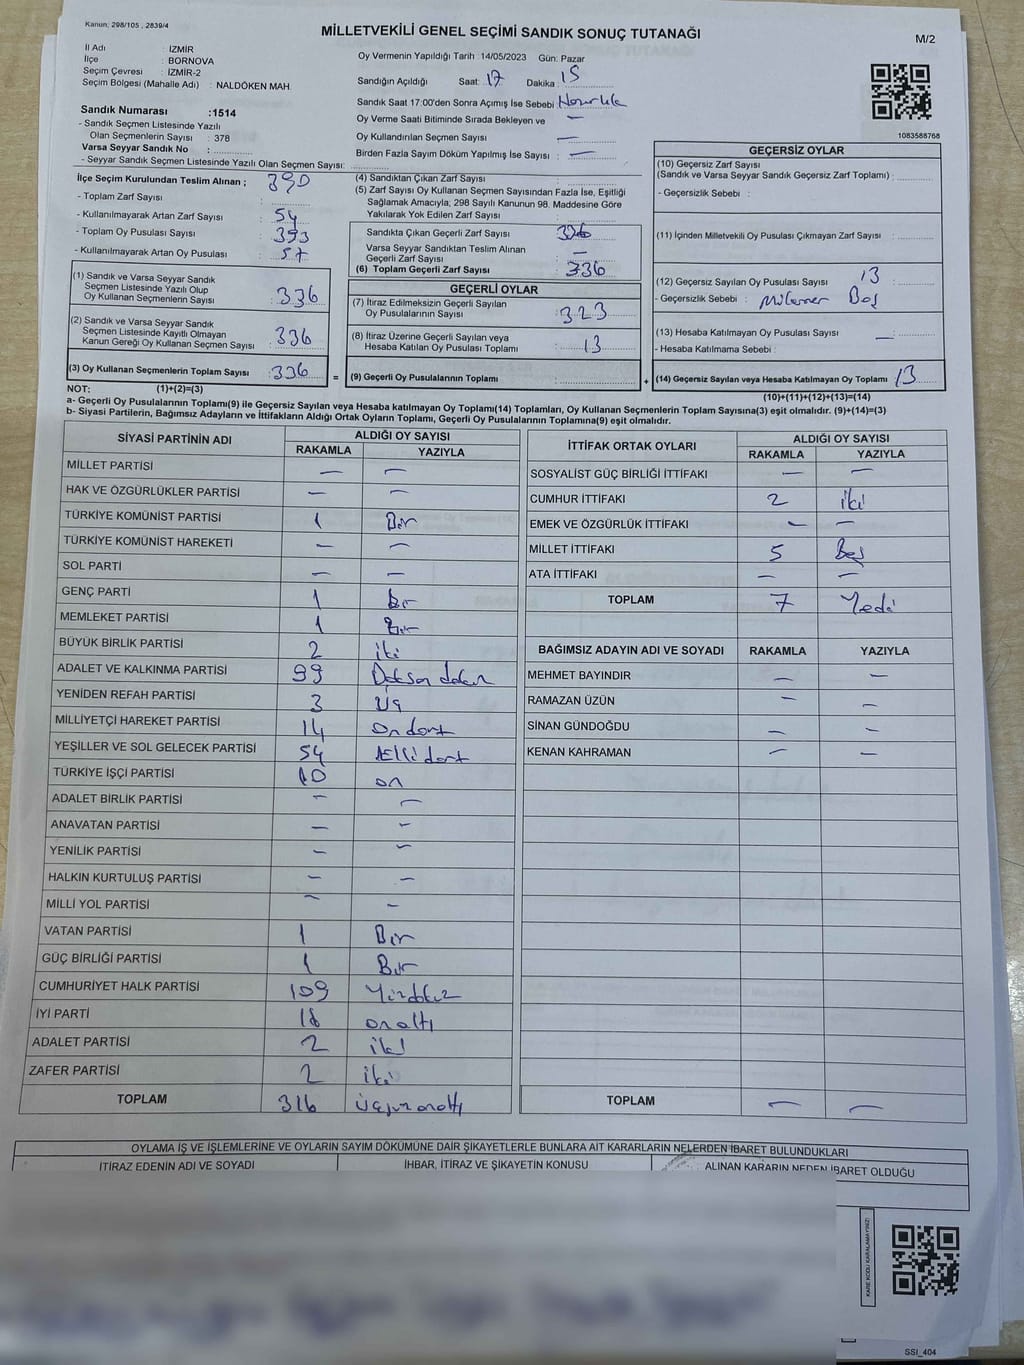 Kanun; 298/105 , 2839/4
MİLLETVEKİLİ GENEL SEÇİMİ SANDIK SONUÇ TUTANAĞI
M/2
İl Adı : İZMİR
İlçe : BORNOVA
Seçim Çevresi : İZMİR-2
Seçim Bölgesi (Mahalle Adı) : NALDÖKEN MAH.
Oy Vermenin Yapıldığı Tarih :14/05/2023 Gün: Pazar
Sandığın Açıldığı Saat: 17 Dakika : 15
Sandık Saat 17:00'den Sonra Açımış İse Sebebi :
Oy Verme Saati Bitiminde Sırada Bekleyen ve : —
Oy Kullandırılan Seçmen Sayısı : —
Birden Fazla Sayım Döküm Yapılmış İse Sayısı : —
1083588768
Sandık Numarası :1514
- Sandık Seçmen Listesinde Yazılı
Olan Seçmenlerin Sayısı : 378
Varsa Seyyar Sandık No :
- Seyyar Sandık Seçmen Listesinde Yazılı Olan Seçmen Sayısı:
İlçe Seçim Kurulundan Teslim Alınan ; 390
- Toplam Zarf Sayısı :
- Kullanılmayarak Artan Zarf Sayısı : 54
- Toplam Oy Pusulası Sayısı : 393
- Kullanılmayarak Artan Oy Pusulası : 57
(1) Sandık ve Varsa Seyyar Sandık
Seçmen Listesinde Yazılı Olup
Oy Kullanan Seçmenlerin Sayısı : 336
(2) Sandık ve Varsa Seyyar Sandık
Seçmen Listesinde Kayıtlı Olmayan
Kanun Gereği Oy Kullanan Seçmen Sayısı : 336
(3) Oy Kullanan Seçmenlerin Toplam Sayısı : 336
(4) Sandıktan Çıkan Zarf Sayısı :
(5) Zarf Sayısı Oy Kullanan Seçmen Sayısından Fazla İse, Eşitliği
Sağlamak Amacıyla, 298 Sayılı Kanunun 98. Maddesine Göre
Yakılarak Yok Edilen Zarf Sayısı :
Sandıkta Çıkan Geçerli Zarf Sayısı :
Varsa Seyyar Sandıktan Teslim Alınan
Geçerli Zarf Sayısı : —
(6) Toplam Geçerli Zarf Sayısı : 336
GEÇERLİ OYLAR
(7) İtiraz Edilmeksizin Geçerli Sayılan
Oy Pusulalarının Sayısı : 323
(8) İtiraz Üzerine Geçerli Sayılan veya
Hesaba Katılan Oy Pusulası Toplamı : 13
= (9) Geçerli Oy Pusulalarının Toplamı :
GEÇERSİZ OYLAR
(10) Geçersiz Zarf Sayısı
(Sandık ve Varsa Seyyar Sandık Geçersiz Zarf Toplamı) :
- Geçersizlik Sebebi :
(11) İçinden Milletvekili Oy Pusulası Çıkmayan Zarf Sayısı :
(12) Geçersiz Sayılan Oy Pusulası Sayısı : 13
- Geçersizlik Sebebi : Boş
(13) Hesaba Katılmayan Oy Pusulası Sayısı : —
- Hesaba Katılmama Sebebi :
+ (14) Geçersiz Sayılan veya Hesaba Katılmayan Oy Toplamı : 13
NOT: (1)+(2)=(3)
(10)+(11)+(12)+(13)=(14)
a- Geçerli Oy Pusulalarının Toplamı(9) ile Geçersiz Sayılan veya Hesaba katılmayan Oy Toplamı(14) Toplamları, Oy Kullanan Seçmenlerin Toplam Sayısına(3) eşit olmalıdır. (9)+(14)=(3)
b- Siyasi Partilerin, Bağımsız Adayların ve İttifakların Aldığı Ortak Oyların Toplamı, Geçerli Oy Pusulalarının Toplamına(9) eşit olmalıdır.
SİYASİ PARTİNİN ADI ALDIĞI OY SAYISI
RAKAMLA YAZIYLA
MİLLET PARTİSİ — —
HAK VE ÖZGÜRLÜKLER PARTİSİ — —
TÜRKİYE KOMÜNİST PARTİSİ 1 Bir
TÜRKİYE KOMÜNİST HAREKETİ — —
SOL PARTİ — —
GENÇ PARTİ 1 Bir
MEMLEKET PARTİSİ 1 Bir
BÜYÜK BİRLİK PARTİSİ 2 iki
ADALET VE KALKINMA PARTİSİ 99 Doksan dokuz
YENİDEN REFAH PARTİSİ 3 Üç
MİLLİYETÇİ HAREKET PARTİSİ 14 On dört
YEŞİLLER VE SOL GELECEK PARTİSİ 54 Elli dört
TÜRKİYE İŞÇİ PARTİSİ 10 on
ADALET BİRLİK PARTİSİ — —
ANAVATAN PARTİSİ — —
YENİLİK PARTİSİ — —
HALKIN KURTULUŞ PARTİSİ — —
MİLLİ YOL PARTİSİ — —
VATAN PARTİSİ 1 Bir
GÜÇ BİRLİĞİ PARTİSİ 1 Bir
CUMHURİYET HALK PARTİSİ 109 Yüzdokuz
İYİ PARTİ onaltı
ADALET PARTİSİ 2 iki
ZAFER PARTİSİ 2 iki
TOPLAM 316 üçyüzonaltı
İTTİFAK ORTAK OYLARI ALDIĞI OY SAYISI
RAKAMLA YAZIYLA
SOSYALİST GÜÇ BİRLİĞİ İTTİFAKI — —
CUMHUR İTTİFAKI 2 iki
EMEK VE ÖZGÜRLÜK İTTİFAKI — —
MİLLET İTTİFAKI 5 Beş
ATA İTTİFAKI — —
TOPLAM 7 Yedi
BAĞIMSIZ ADAYIN ADI VE SOYADI RAKAMLA YAZIYLA
MEHMET BAYINDIR — —
RAMAZAN ÜZÜN — —
SİNAN GÜNDOĞDU — —
KENAN KAHRAMAN — —
TOPLAM — —
OYLAMA İŞ VE İŞLEMLERİNE VE OYLARIN SAYIM DÖKÜMÜNE DAİR ŞİKAYETLERLE BUNLARA AİT KARARLARIN NELERDEN İBARET BULUNDUKLARI
İTİRAZ EDENİN ADI VE SOYADI İHBAR, İTİRAZ VE ŞİKAYETİN KONUSU ALINAN KARARIN NEDEN İBARET OLDUĞU
KARE KODU KARALAMAYINIZ!
SSİ_404